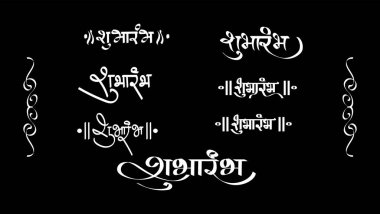 शुभारंभ
शुभारंभ
शुभारंभ
॥शुभारंभ॥
॥शुभारंभ॥
॥शुभारंभ॥
शुभारंभ